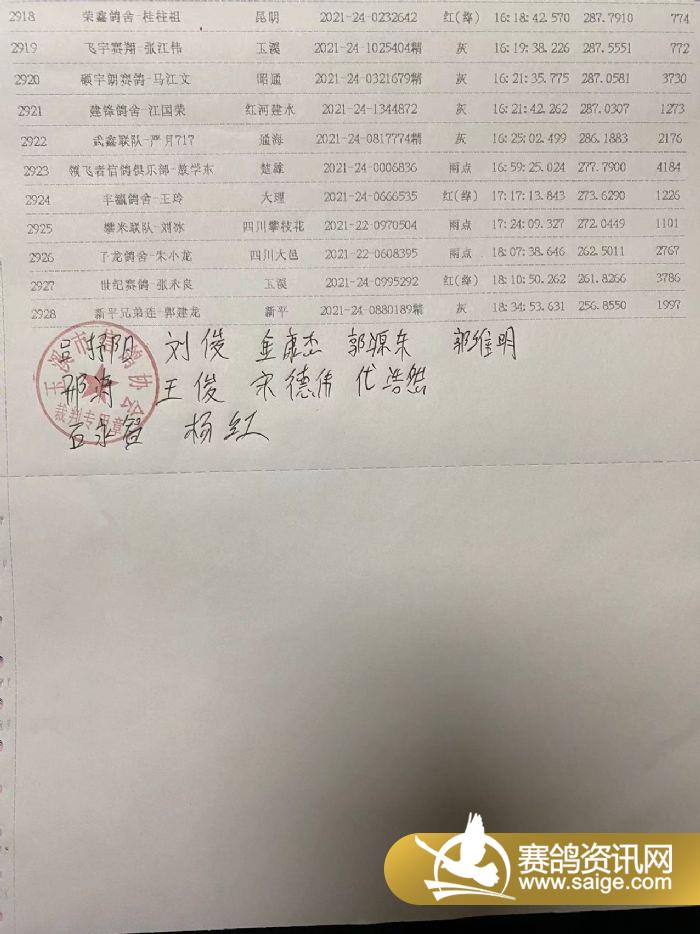 2918 荣鑫鸽舍-桂柱祖 昆明 2021-24-0232642 红(绛) 16:18:42.570 287.7910 774
2919 飞宇赛翔-张江伟 玉溪 2021-24-1025404精 灰 16:19:38.226 287.5551 772
2920 硕宇朝赛鸽-马江文 昭通 2021-24-0321679精 灰 16:21:35.775 287.0581 3730
2921 建锋鸽舍-江国荣 红河建水 2021-24-1344872 灰 16:21:42.262 287.0307 1273
2922 武鑫联队-严月717 通海 2021-24-0817774精 灰 16:25:02.499 286.1883 2176
2923 领飞者信鸽俱乐部-敖学东 楚雄 2021-24-0006836 雨点 16:59:25.024 277.7900 4184
2924 羊瀛鸽舍-王玲 大理 2021-24-0666535 红(绛) 17:17:13.843 273.6290 1226
2925 攀米联队-刘冰 四川攀枝花 2021-22-0970504 雨点 17:24:09.327 272.0449 1101
2926 子龙鸽舍-朱小龙 四川大邑 2021-22-0608395 雨点 18:07:38.646 262.5011 2767
2927 世纪赛鸽-张永良 玉溪 2021-24-0995292 红(绛) 18:10:50.262 261.8266 3786
2928 新平兄弟连-郭建龙 新平 2021-24-0880189精 灰 18:34:53.631 256.8550 1997
刘俊 郭源东 郭维明
邢涛 王俊 宋德伟 代浩然
杨红
玉溪市信鸽协会
裁判专用章
赛鸽资讯网
www.saige.com